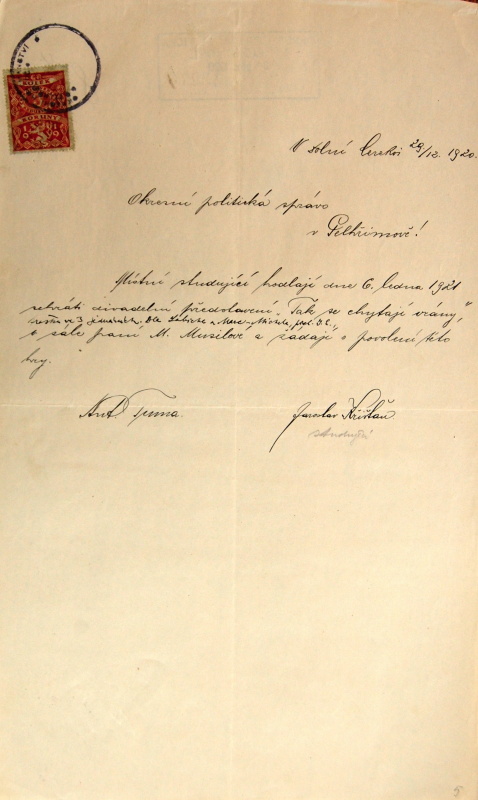 KOLEK
KORUNY
V Dolní Cerekvi 29/12. 1920.
Okresní politická správo
v Pelhřimově!
Místní studující hodlají dne 6. ledna 1921
sehráti divadelní představení „Tak se chytají vrány"
o 3 Dle Labiche a Marc-Michela,
v sále paní M. Musilové a žádají o povolení této
hry.
Ant. Tuma.
Jaroslav Křišťan
studující
5